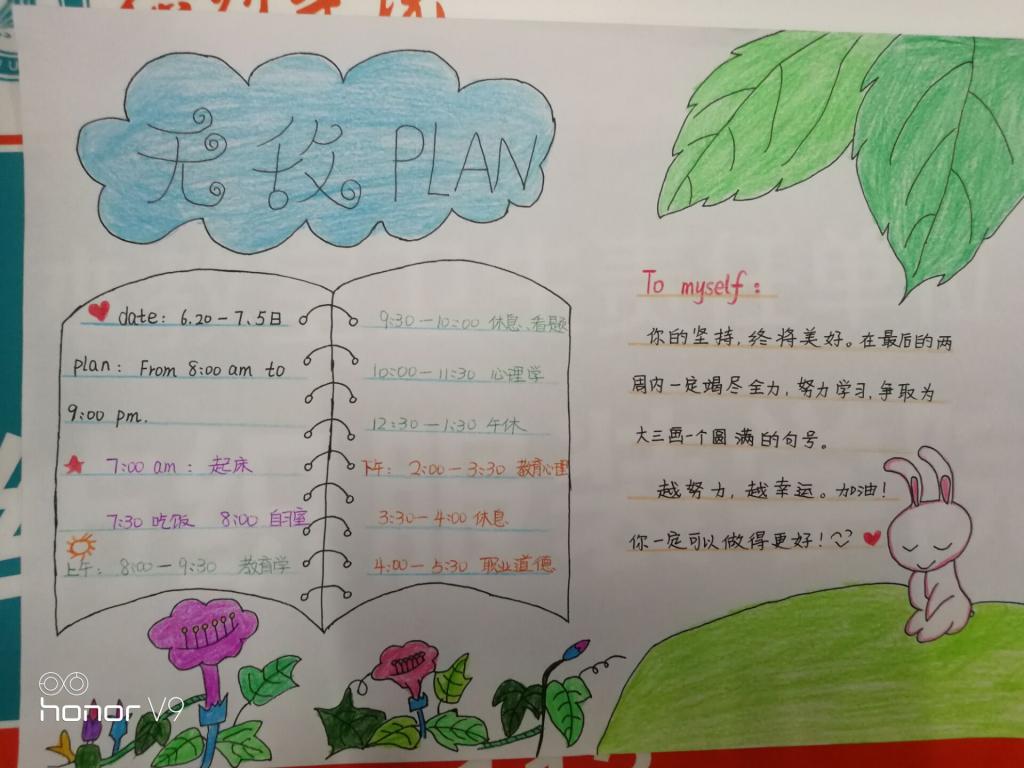 无敌 PLAN
date: 6.20-7.5日
plan: From 8:00 am to
9:00 pm.
7:00 am: 起床
7:30 吃饭 8:00 自习室
上午: 8:00-9:30 教育学
9:30-10:00 休息、看题
10:00-11:30 心理学
12:30-1:30 午休
下午: 2:00-3:30 教育心理
3:30-4:00 休息
4:00-5:30 职业道德
To myself:
你的坚持,终将美好。在最后的两
周内一定竭尽全力,努力学习,争取为
大三画一个圆满的句号。
越努力,越幸运。加油!
你一定可以做得更好!
honor V9